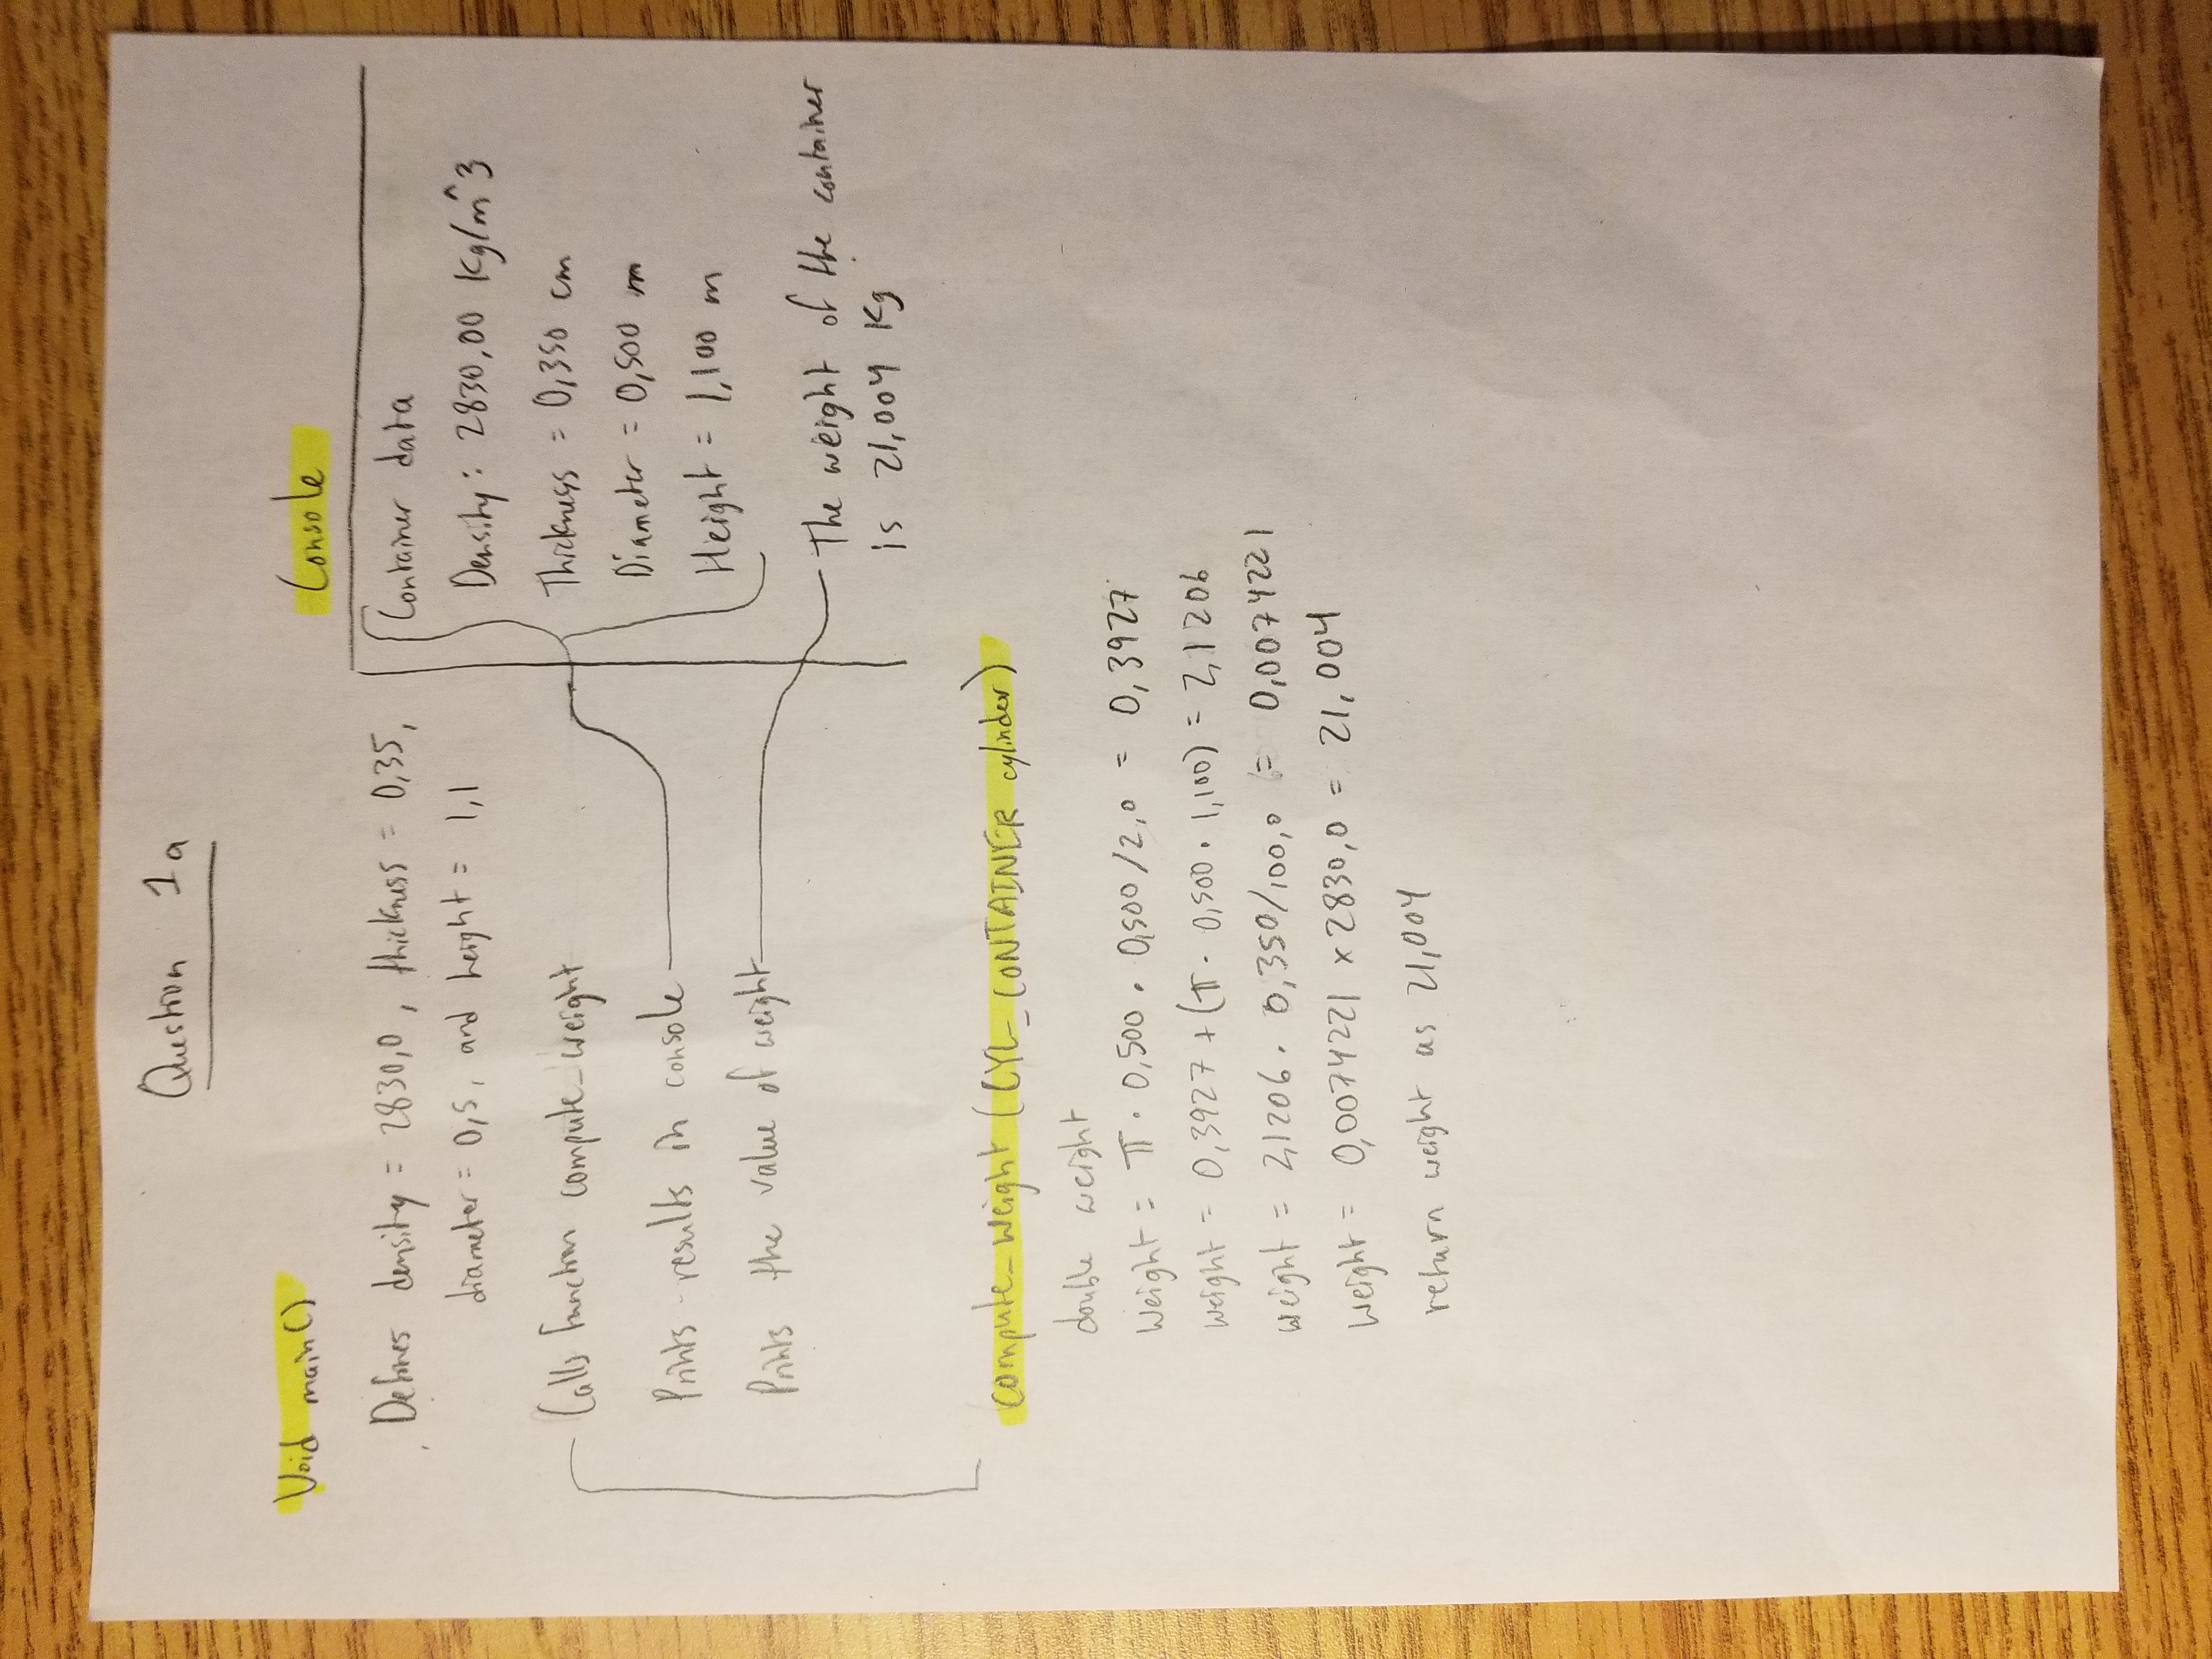 Question 1a
Void main()
Defines density = 2830,0, thickness = 0,35,
diameter = 0,5, and height = 1,1
Calls function compute_weight
Prints results in console
Prints the value of weight
Console
Container data
Density: 2830,00 Kg/m^3
Thickness = 0,350 cm
Diameter = 0,500 m
Height = 1,100 m
The weight of the container
is 21,004 Kg
compute_weight (CYL_CONTAINER cylinder)
double weight
weight = π · 0,500 · 0,500/2,0 = 0,3927
weight = 0,3927 + (π · 0,500 · 1,100) = 2,1206
weight = 2,1206 · 0,350/100,0 = 0,0074221
weight = 0,0074221 x 2830,0 = 21,004
return weight as 21,004